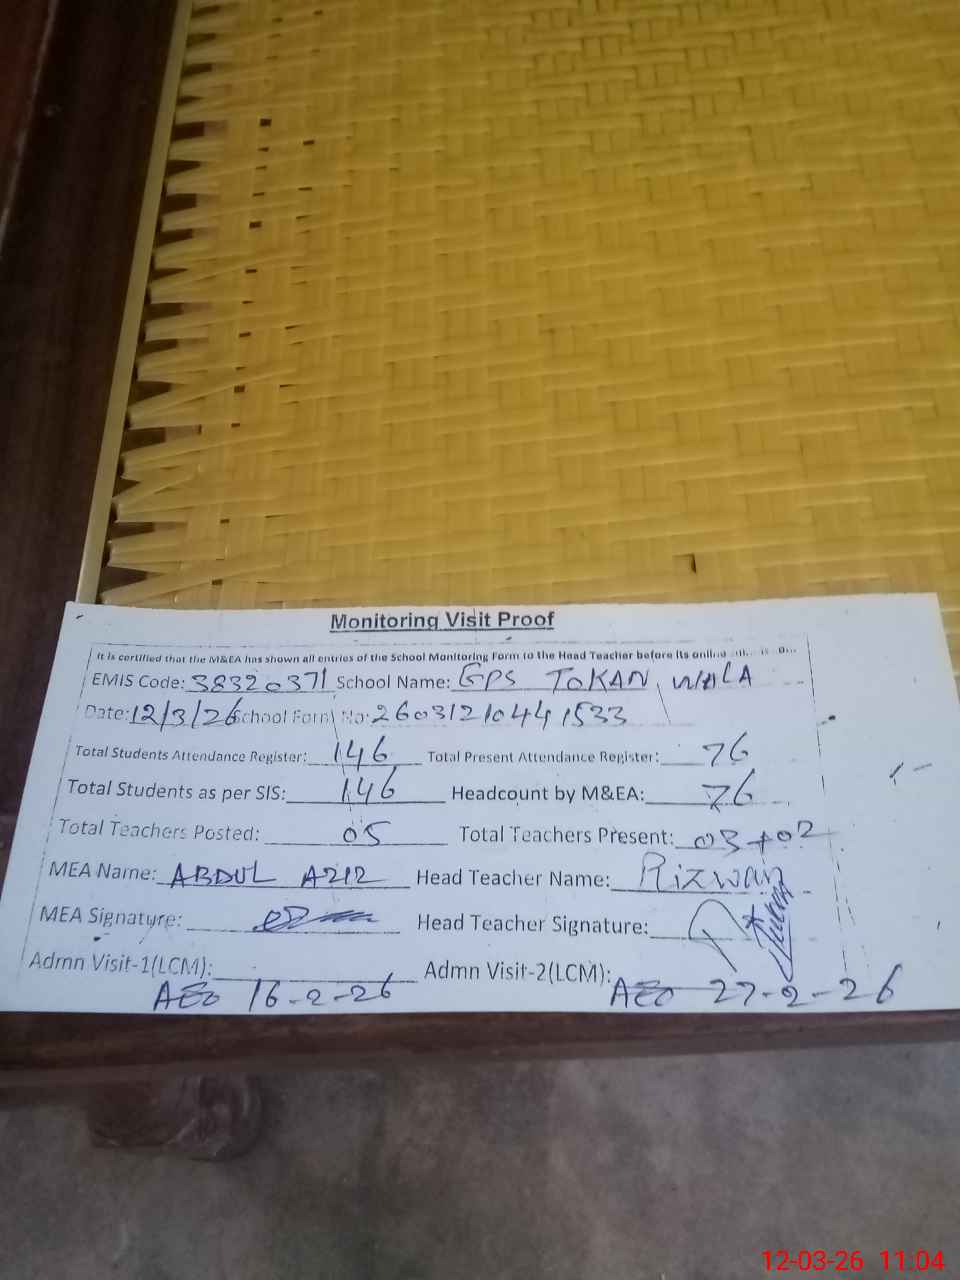 Monitoring Visit Proof
It is certified that the M&EA has shown all entries of the School Monitoring Form to the Head Teacher before its online
EMIS Code: 38320371 School Name: GPS TOKAN WALA
Date: 12/3/26 School Form No: 26031210441533
Total Students Attendance Register: 146 Total Present Attendance Register: 76
Total Students as per SIS: 146 Headcount by M&EA: 76
Total Teachers Posted: 05 Total Teachers Present: 03+02
MEA Name: ABDUL AZIZ Head Teacher Name: Rizwan
MEA Signature: Head Teacher Signature:
Admn Visit-1(LCM): Admn Visit-2(LCM):
AEO 16-2-26 AEO 27-2-26
12-03-26 11:04